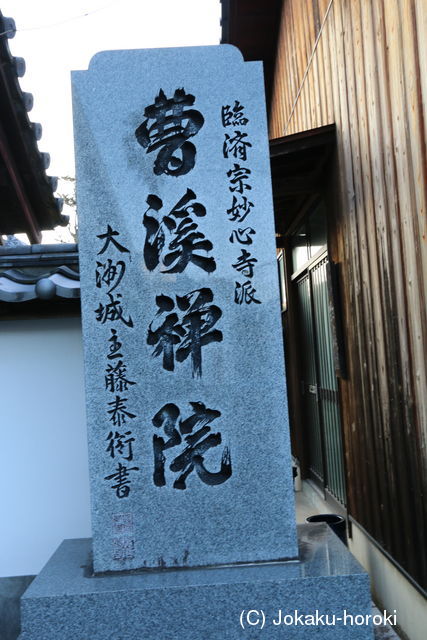 臨済宗妙心寺派
曹溪禅院
大洲城主藤泰衑書
(C) Jokaku-horoki